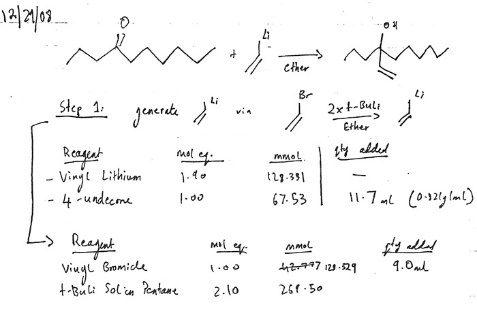 12/29/08
O
Li
OH
+
Ether
Step 1: generate
Li
via
Br
2x t-BuLi
Ether
Li
Reagent mol eq. mmol qty added
- Vinyl Lithium 1.90 128.331 —
- 4-undecone 1.00 67.53 11.7 mL (0.821g/ml)
Reagent mol eq. mmol qty added
Vinyl Bromide 1.00 128.329 9.0ml
t-BuLi Sol in Pentane 2.10 269.50